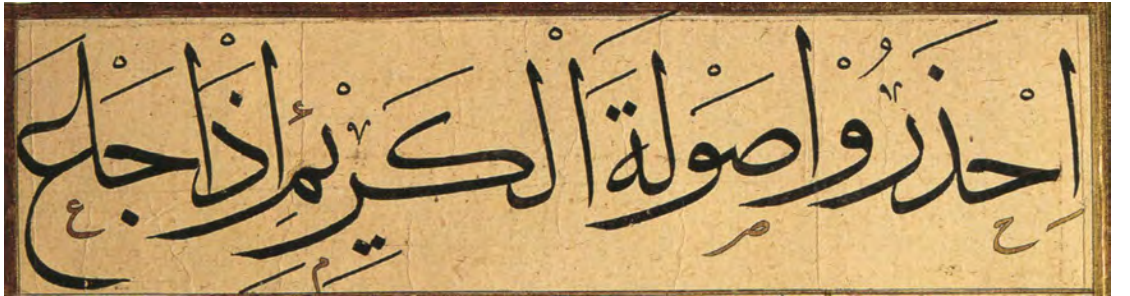 اِحْذَرُوْا صَوْلَةَ الْكَرِيْمِ اِذَا جَاعَ